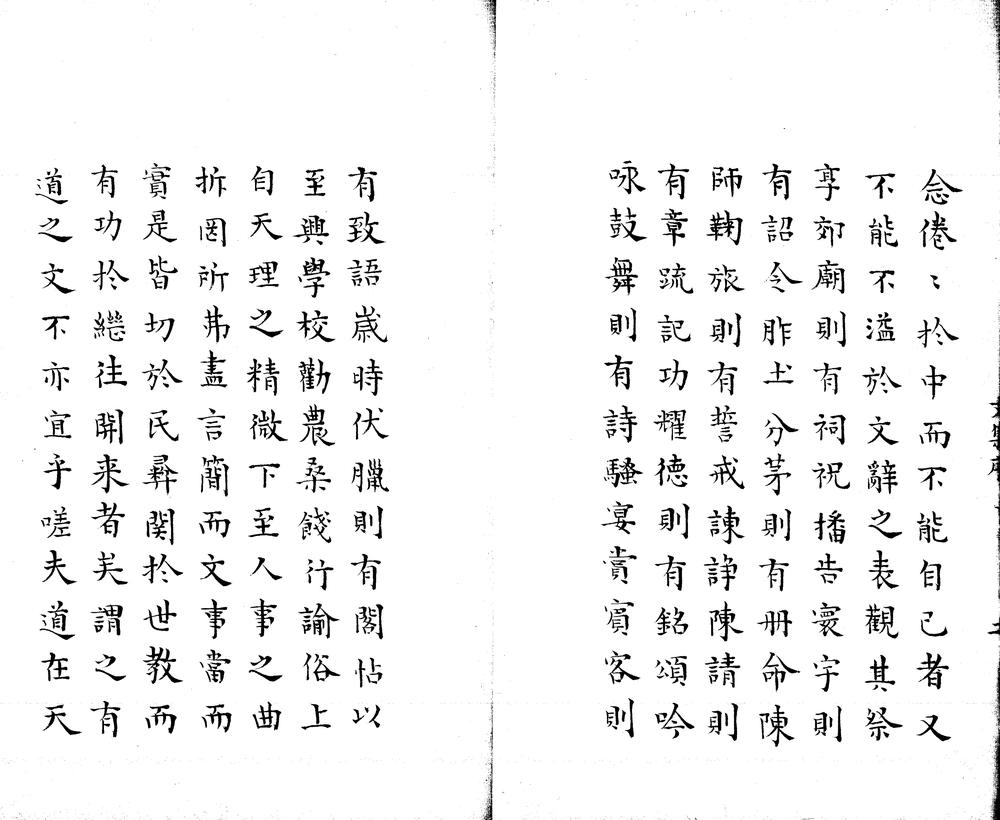 念倦〻扵中而不能自已者又
不能不溢於文辭之表觀其祭
享郊廟則有祠祝播告寰宇則
有詔令胙土分茅則有冊命陳
師鞠旅則有誓戒諫諍陳請則
有章疏記功耀德則有銘頌吟
咏鼓舞則有詩騷宴賞賓客則
有致語歲時伏臘則有閣帖以
至興學校勸農桑餞行諭俗上
自天理之精微下至人事之曲
折罔所弗盡言簡而文事當而
實是皆切於民彝関扵世教而
有功扵繼往開来者矣謂之有
道之文不亦宜乎嗟夫道在天